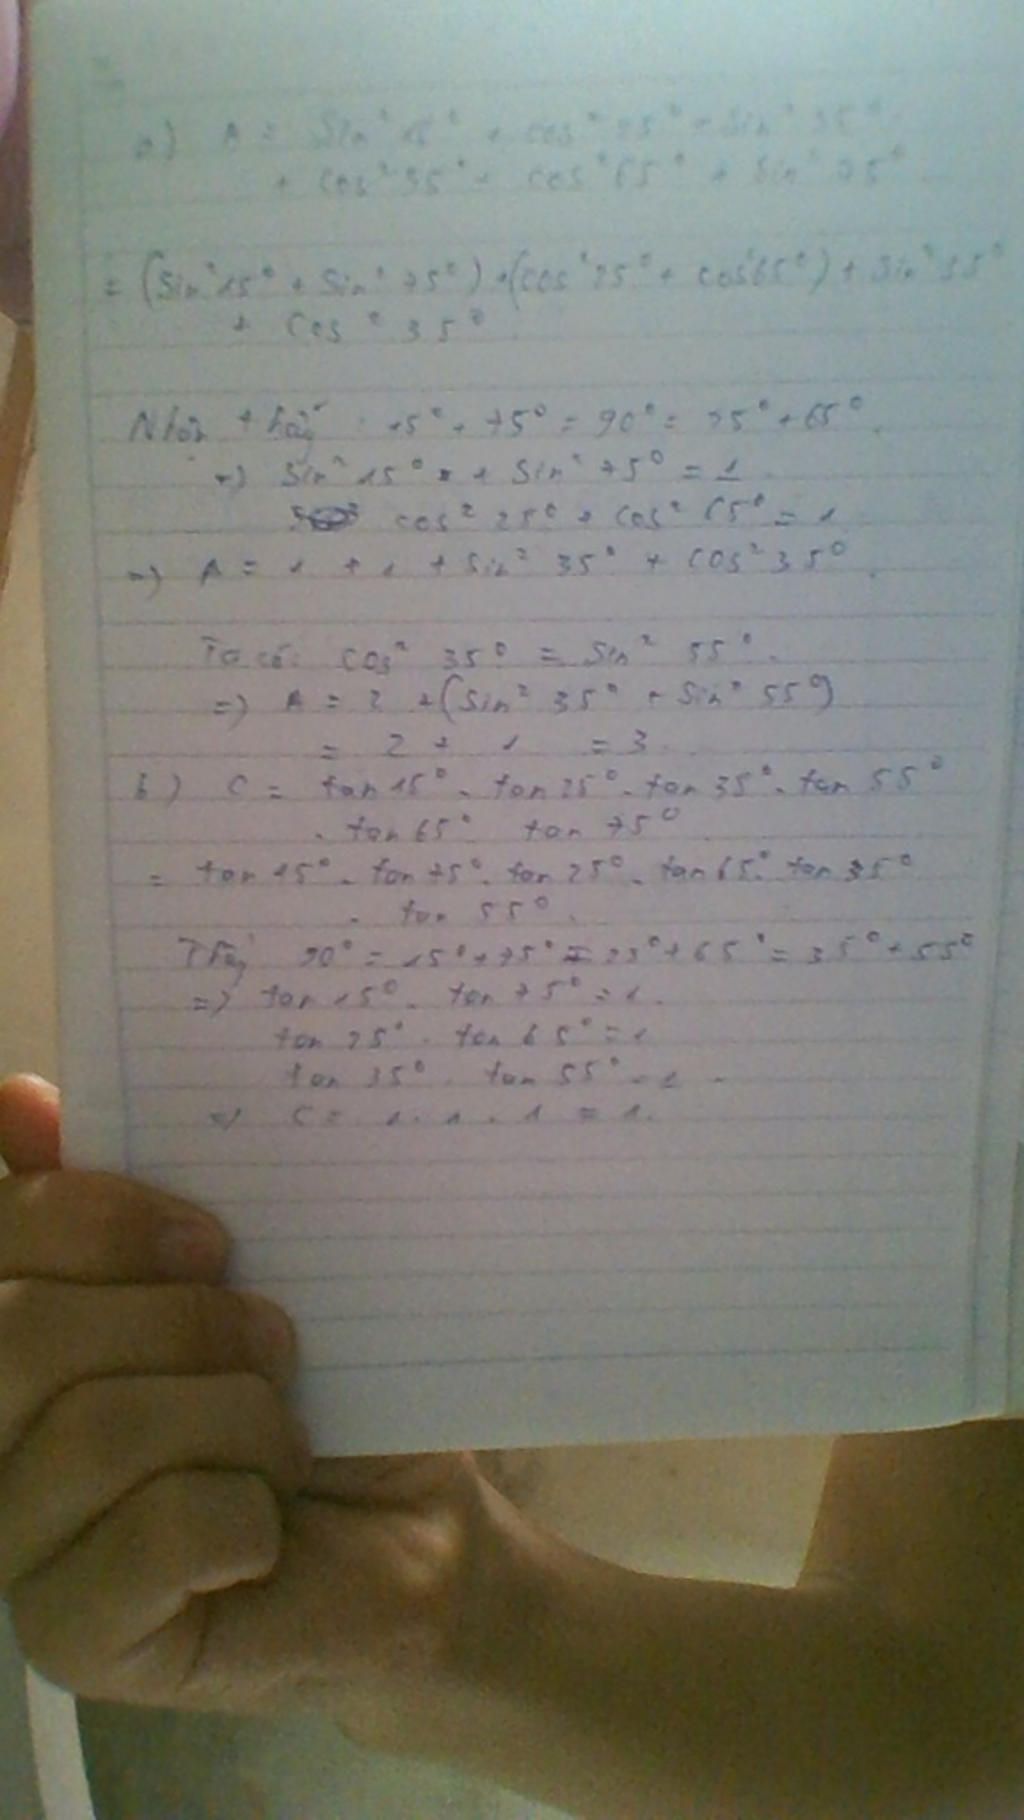 a) A = Sin² 15° + cos² 25° + Sin² 35°
+ cos² 35° + cos² 65° + Sin² 75°
= (Sin² 15° + Sin² 75°) + (cos² 25° + cos² 65°) + Sin² 35°
+ Cos² 35°
Nhận thấy: 15° + 75° = 90° = 25° + 65°.
=) Sin² 15° + Sin² 75° = 1
cos² 25° + cos² 65° = 1
=) A = 1 + 1 + Sin² 35° + COS² 35°.
Ta có: cos² 35° = Sin² 55°.
=) A = 2 + (Sin² 35° + Sin² 55°)
= 2 + 1 = 3.
b) C = tan 15° . tan 25° . tan 35° . tan 55°
. tan 65° tan 75°
= tan 15° . tan 75° . tan 25° . tan 65° . tan 35°
. tan 55°.
Thấy 90° = 15° + 75° = 25° + 65° = 35° + 55°
=) tan 15° . tan 75° = 1.
tan 25° . tan 65° = 1
tan 35° . tan 55° = 1.
=) C = 1 . 1 . 1 = 1.